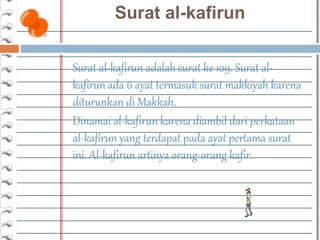 Surat al-kafirun
Surat al-kafirun adalah surat ke 109. Surat al-
kafirun ada 6 ayat termasuk surat makkiyah karena
diturunkan di Makkah.
Dinamai al-kafirun karena diambil dari perkataan
al-kafirun yang terdapat pada ayat pertama surat
ini. Al-kafirun artinya orang-orang kafir.